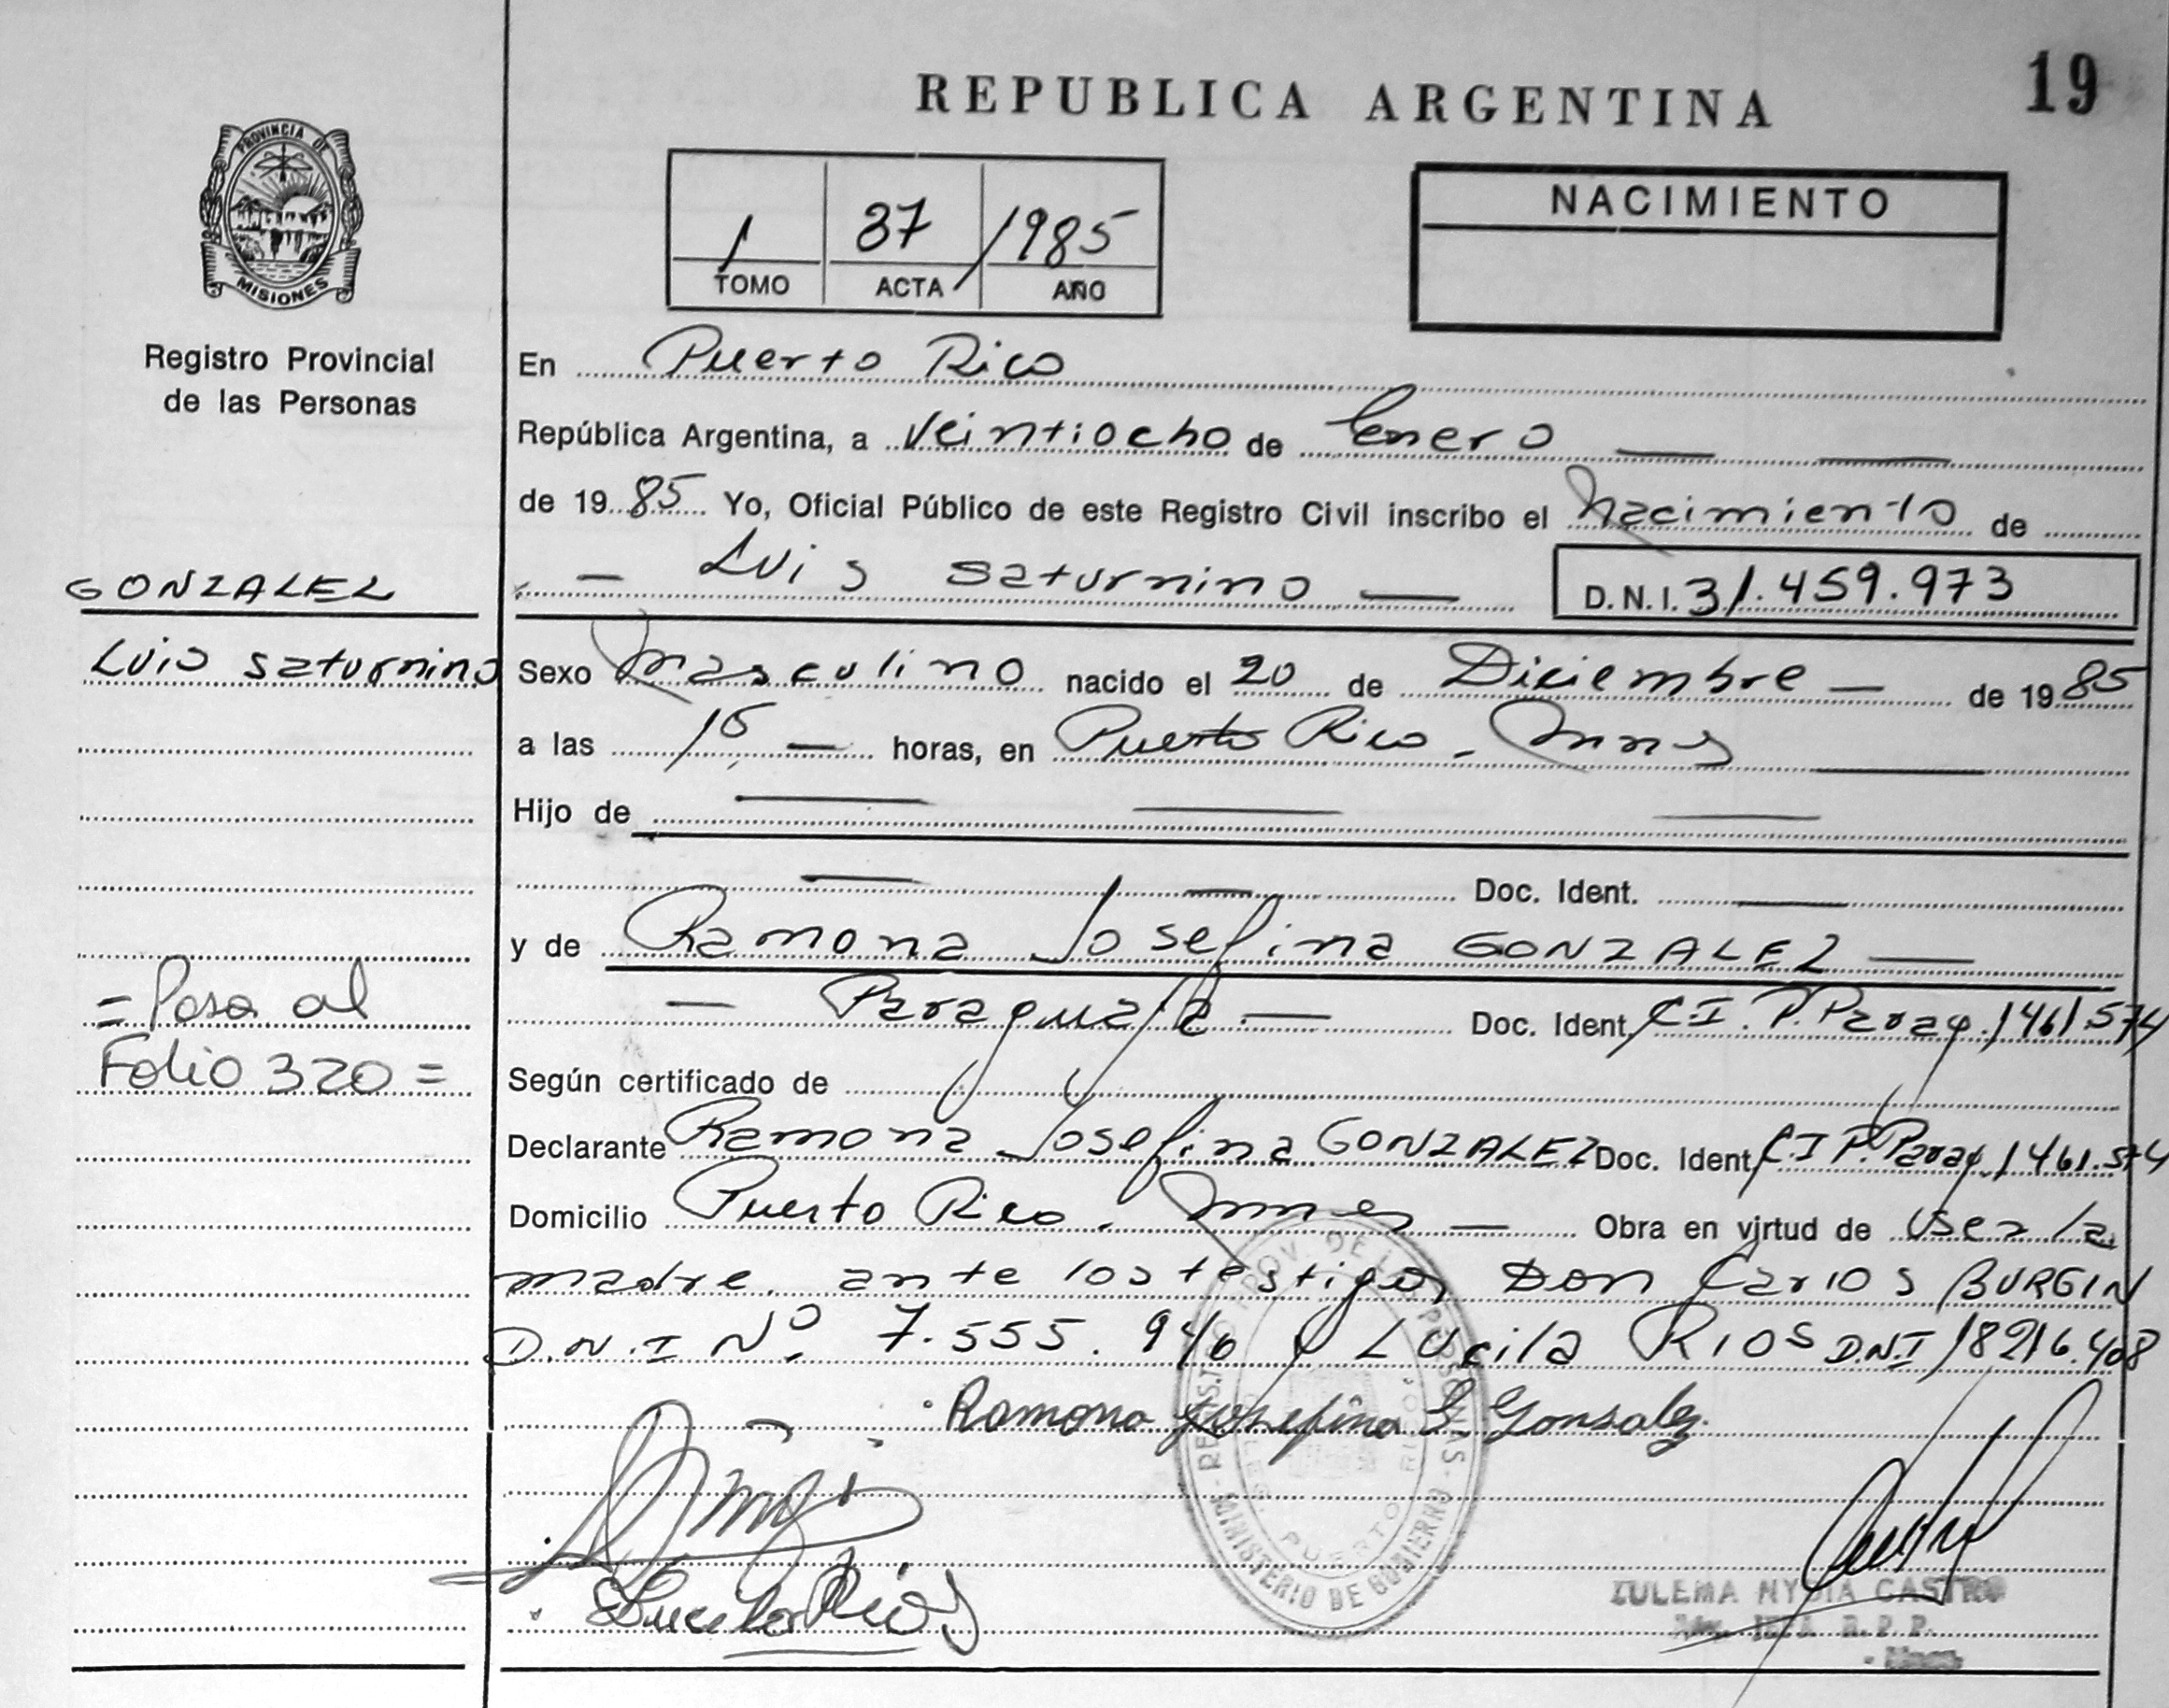 REPUBLICA ARGENTINA
19
PROVINCIA DE
MISIONES
Registro Provincial
de las Personas
1 37 1985
TOMO ACTA AÑO
NACIMIENTO
En Puerto Rico
República Argentina, a veintiocho de Enero
de 19 85 Yo, Oficial Público de este Registro Civil inscribo el Nacimiento de
Luis Saturnino D.N.I. 31.459.973
GONZALEZ
Luis Saturnino
Sexo Masculino nacido el 20 de Diciembre de 19 85
a las 15 horas, en Puerto Rico - Mnes
Hijo de
Doc. Ident.
y de Ramona Josefina GONZALEZ
Paraguaya Doc. Ident. C.I. P. Parag. 1461.574
= Pasa al
Folio 320 =
Según certificado de
Declarante Ramona Josefina GONZALEZ Doc. Ident. C I P. Parag. 1461.574
Domicilio Puerto Rico - Mnes Obra en virtud de ser la
madre ante los testigos Don Carlos BURGIN
D.N.I Nº 7.555.940 y Lucila RIOS D.N.I 18216.408
Ramona Josefina G. Gonsalez
Lucila Rios
MINISTERIO DE GOBIERNO
PUERTO RICO
ZULEMA NYDIA CASTRO
JEFA R.P.P.